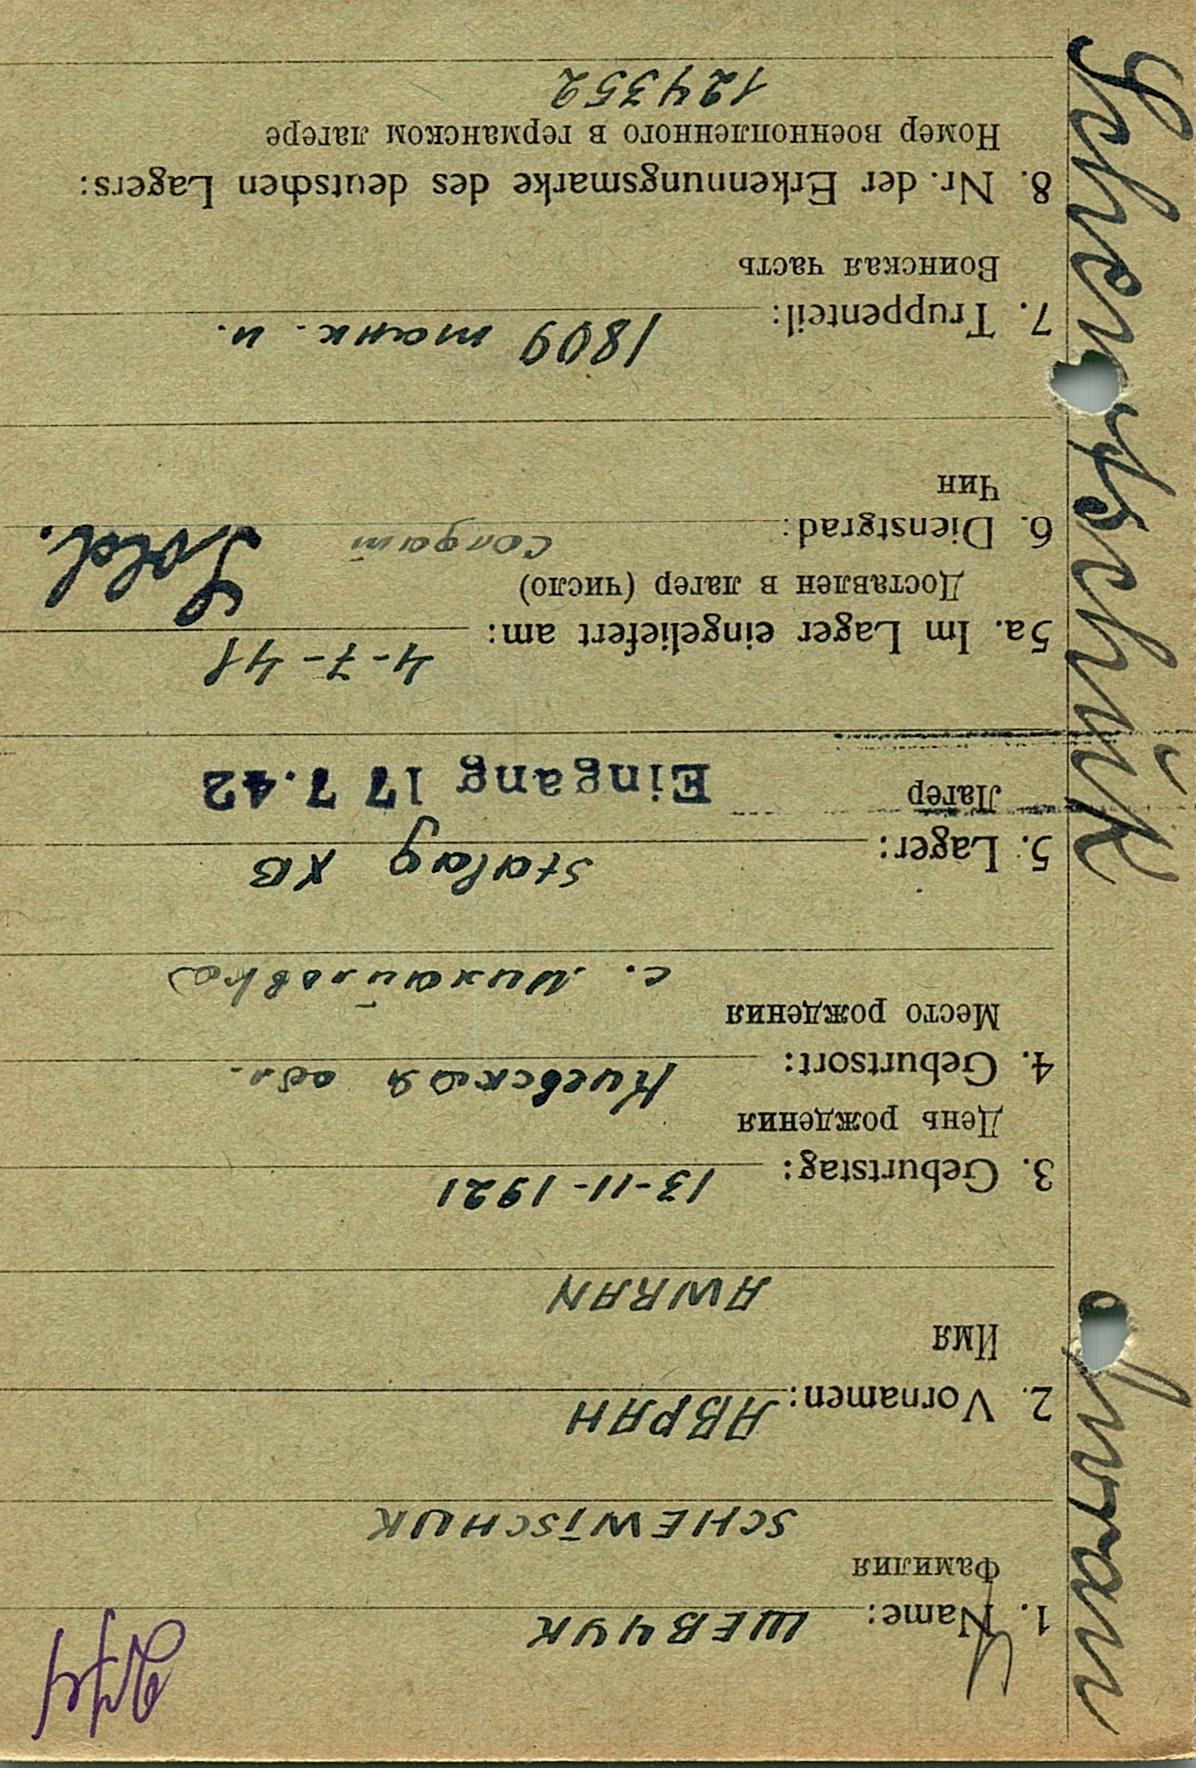 274
1. Name: ШЕВЧУК
Фамилия
SCHEWTSCHUK
2. Vornamen: АВРАН
Имя
AWRAN
3. Geburtstag: 13-11-1921
День рождения
4. Geburtsort: Киевская обл.
Место рождения
с. Михайловка
5. Lager: Stalag XB
Лагер
Eingang 17 7.42
5a. Im Lager eingeliefert am: 4-7-41
Доставлен в лагер (число)
6. Dienstgrad: солдат Sold.
Чин
7. Truppenteil: 1809 танк. п.
Воинская часть
8. Nr. der Erkennungsmarke des deutschen Lagers:
Номер военнопленного в германском лагере
124352
Schewtschuk
Awran